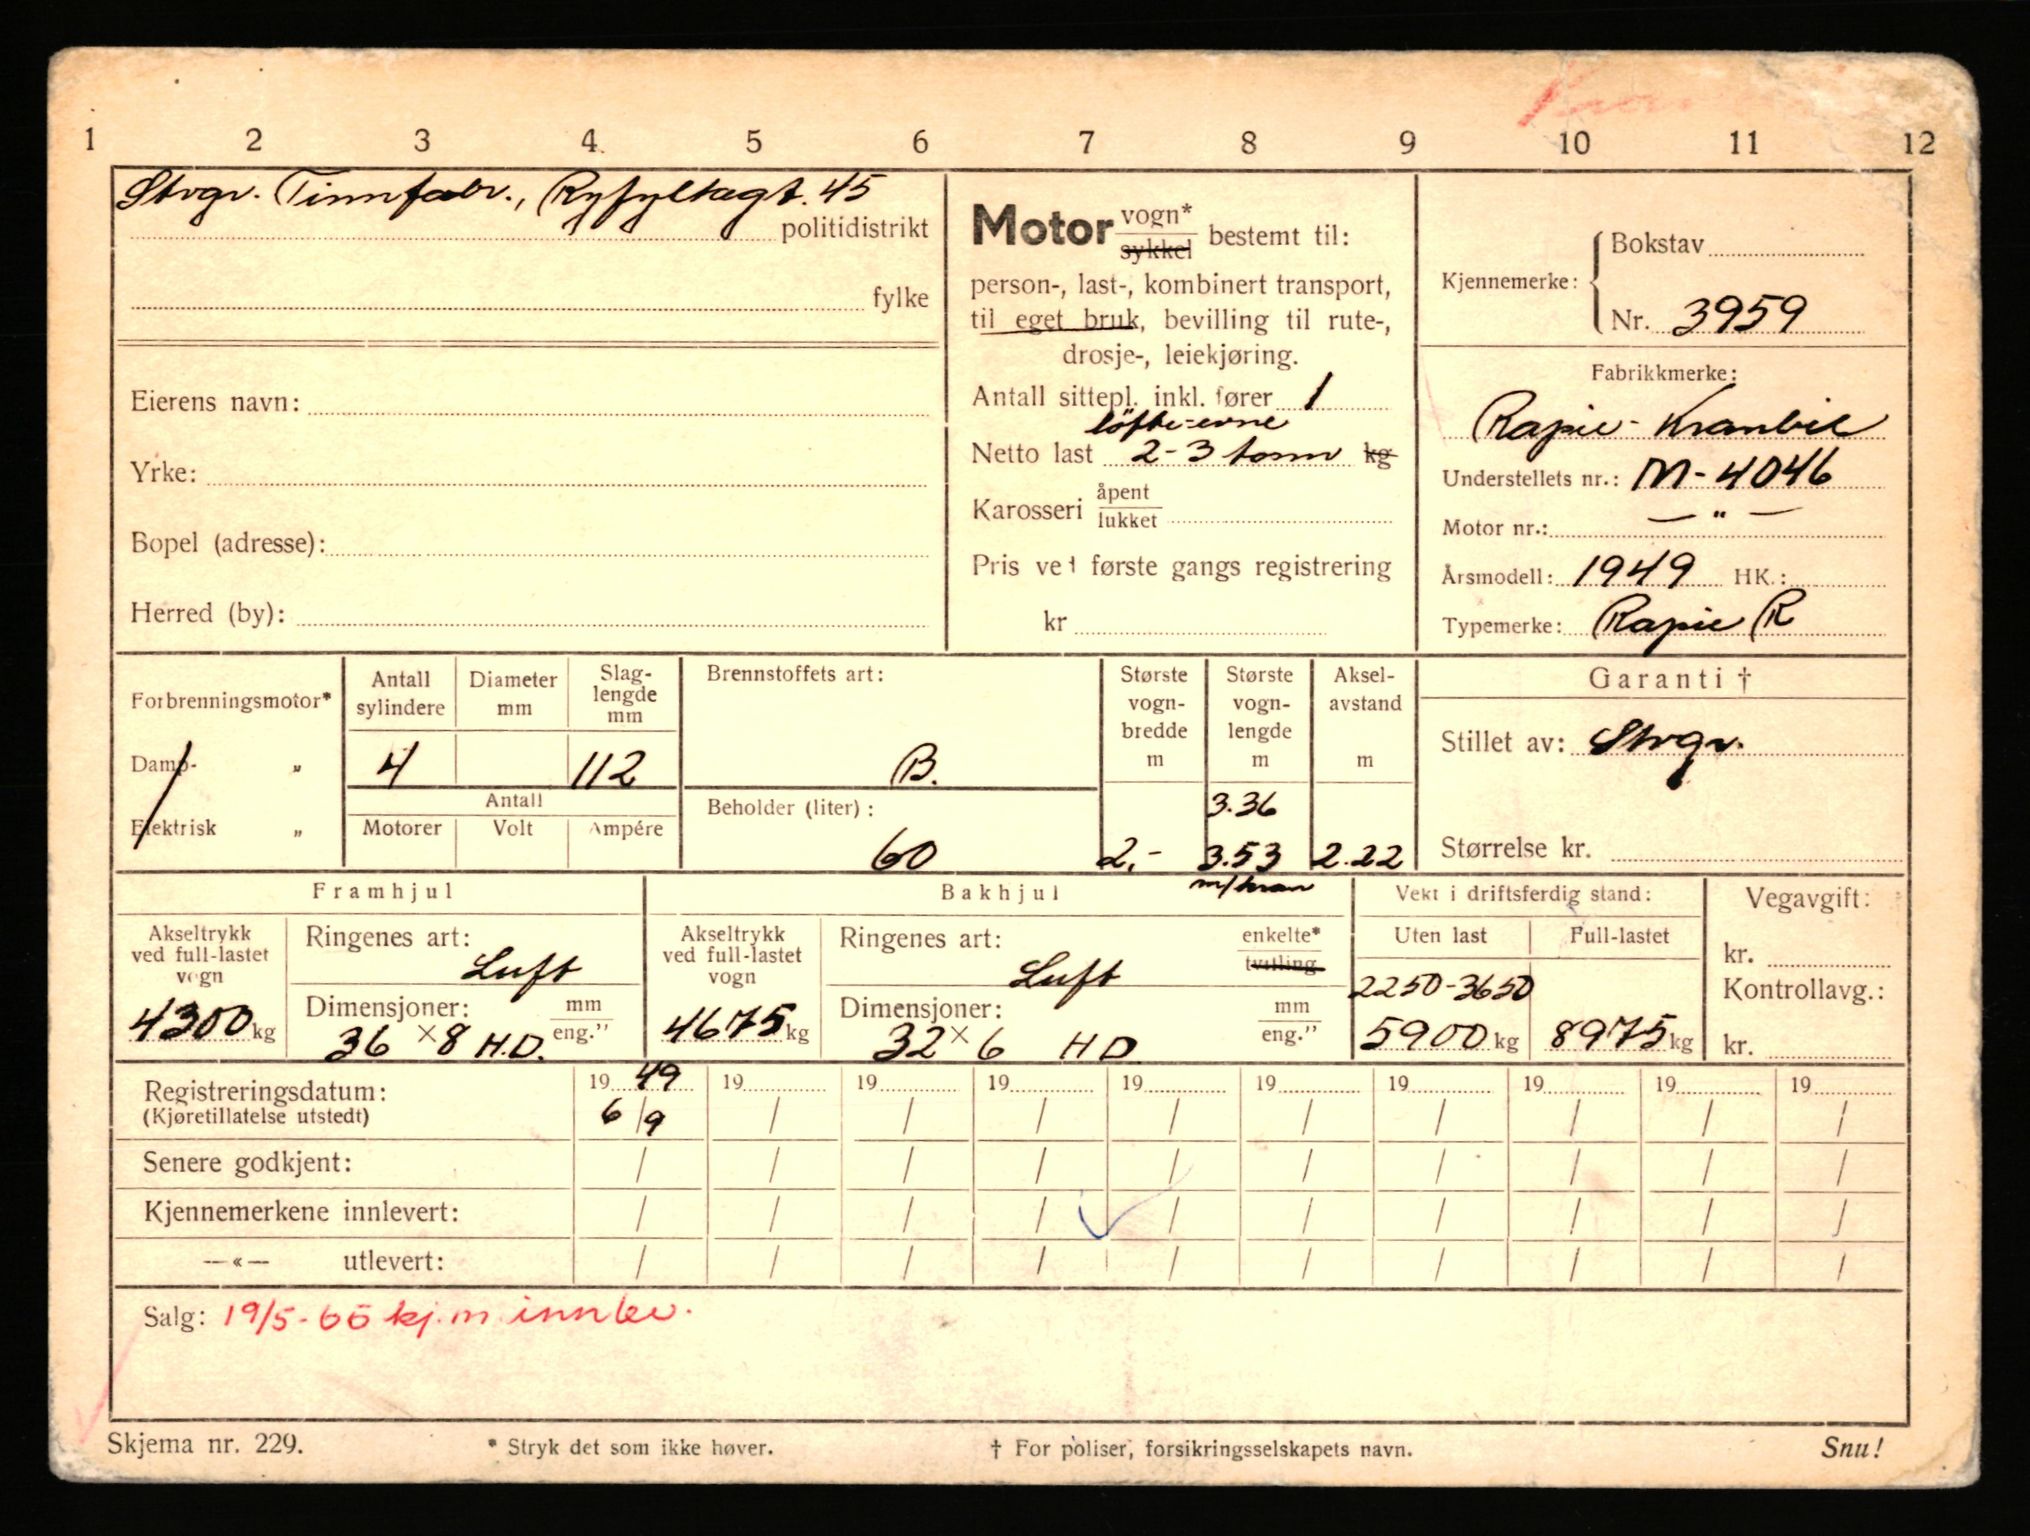 1 2 3 4 5 6 7 8 9 10 11 12
Stvgr. Tinnfabr., Ryfylkegt. 45
politidistrikt
fylke
Eierens navn:
Yrke:
Bopel (adresse):
Herred (by):
Motor vogn* sykkel bestemt til:
person-, last-, kombinert transport,
til eget bruk, bevilling til rute-,
drosje-, leiekjøring.
Antall sittepl. inkl. fører 1
löfte-evne
Netto last 2-3 tonn kg
Karosseri åpent lukket
Pris ved første gangs registrering
kr
Kjennemerke: Bokstav
Nr. 3959
Fabrikkmerke:
Rapie-Kranbil
Understellets nr.: M-4046
Motor nr.: — " —
Årsmodell: 1949 HK.:
Typemerke: Rapie R
Forbrenningsmotor*
Damp- „
Elektrisk „
Antall sylindere
Diameter mm
Slag-lengde mm
4 112
Antall
Motorer Volt Ampére
Brennstoffets art:
B.
Beholder (liter):
60
Største vogn-bredde m
2,-
Største vogn-lengde m
3.36
3.53
m/kran
Aksel-avstand m
2.22
Garanti †
Stillet av: Stvgr.
Størrelse kr.
Framhjul
Akseltrykk ved full-lastet vogn
4300 kg
Ringenes art:
Luft
Dimensjoner: mm eng."
36 x 8 H.D.
Bakhjul
Akseltrykk ved full-lastet vogn
4675 kg
Ringenes art: enkelte* tvilling
Luft
Dimensjoner: mm eng."
32 x 6 HD
Vekt i driftsferdig stand:
Uten last Full-lastet
2250-3650
5900 kg 8975 kg
Vegavgift:
kr.
Kontrollavg.:
kr.
Registreringsdatum: 19 49 19 19 19 19 19 19 19 19 19
(Kjøretillatelse utstedt) 6/9 / / / / / / / / /
Senere godkjent: / / / / / / / / / /
Kjennemerkene innlevert: / / / / / / / / / /
—«— utlevert: / / / / / / / / / /
Salg: 19/5-65 kj.m innlev.
Skjema nr. 229. * Stryk det som ikke høver. † For poliser, forsikringsselskapets navn. Snu!